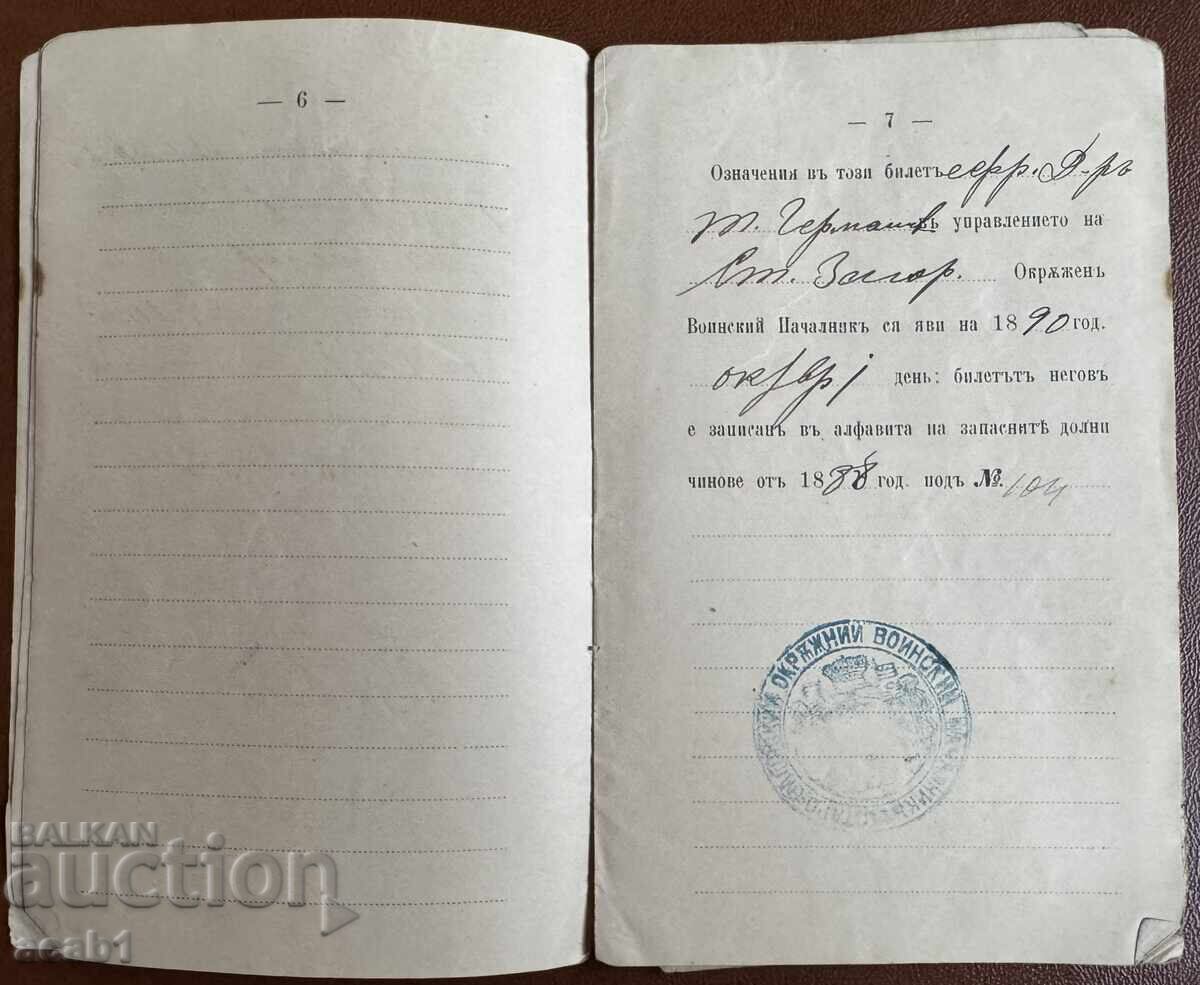 — 6 —
— 7 —
Означения въ този билетъ ефр. Д-ръ
Т. Германовъ управлението на
Ст. Загор. Окрѫженъ
Воинский Началникъ ся яви на 1890 год.
октвр 1 день: билетътъ неговъ
е записанъ въ алфавита на запаснитѣ долни
чинове отъ 1888 год. подъ № 104
ОКРѪЖНИЙ ВОИНСКИЙ
BALKAN
auction
acab1